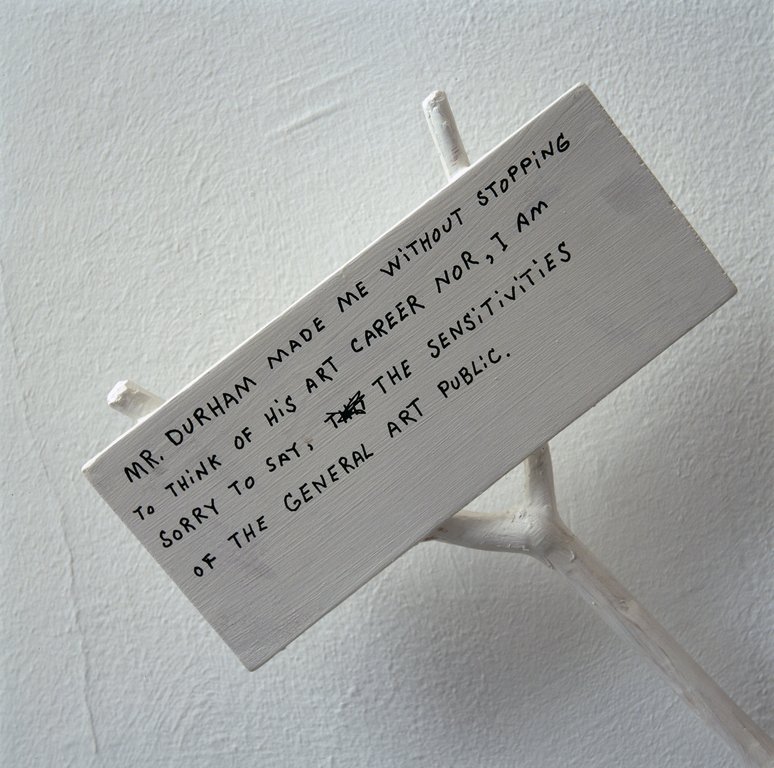 MR. DURHAM MADE ME WITHOUT STOPPING
TO THINK OF HIS ART CAREER NOR, I AM
SORRY TO SAY, THE SENSITIVITIES
OF THE GENERAL ART PUBLIC.